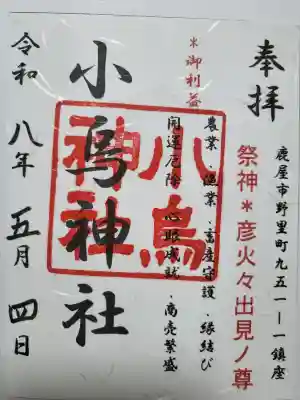 奉拝
鹿屋市野里町九五一ー一鎮座
祭神＊彦火々出見ノ尊
＊御利益
農業・漁業・畜産守護・縁結び
開運厄除・心眼成就・商売繁盛
小烏神社
小烏神社
令和八年五月四日